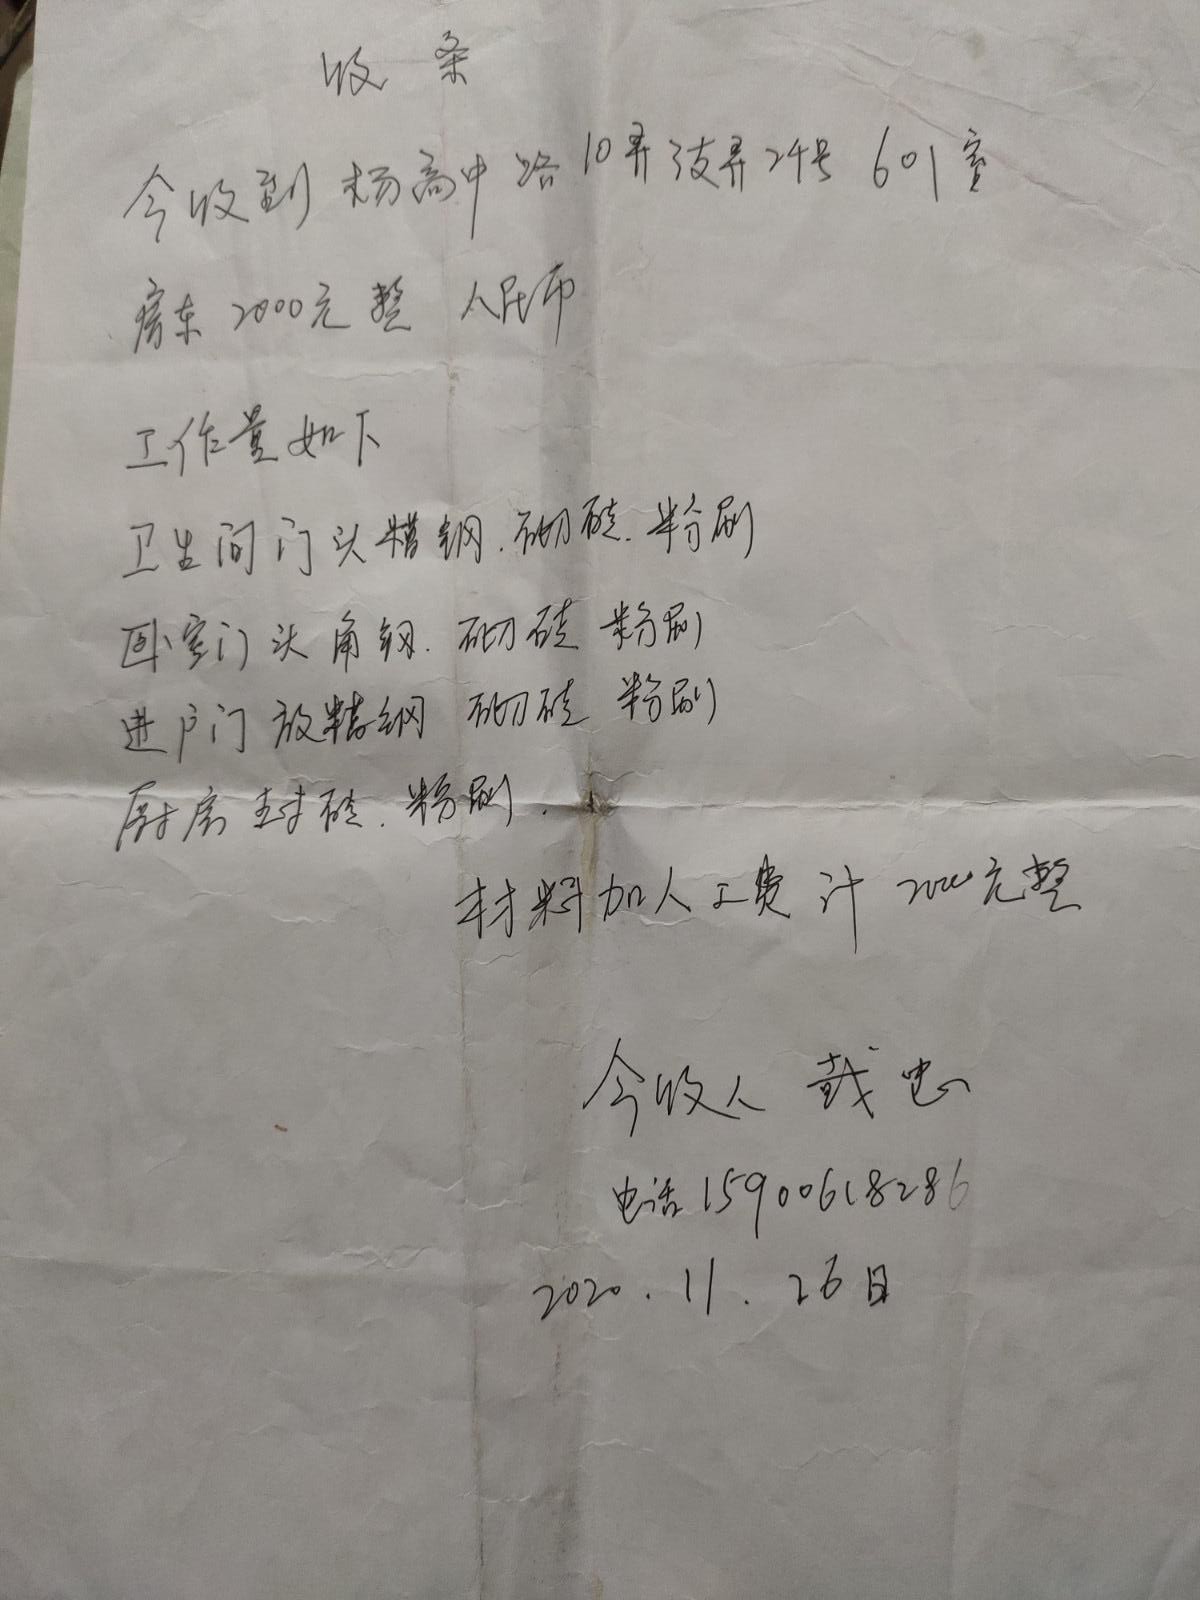 收条
今收到杨高中路10弄支弄24号601室
房东2000元整 人民币
工作量如下
卫生间门头糟钢.砌砖.粉刷
卧室门头角钢.砌砖 粉刷
进户门放糟钢 砌砖 粉刷
厨房封砖.粉刷.
材料加人工费计2000元整
今收人 戴忠
电话15900618286
2020.11.26日